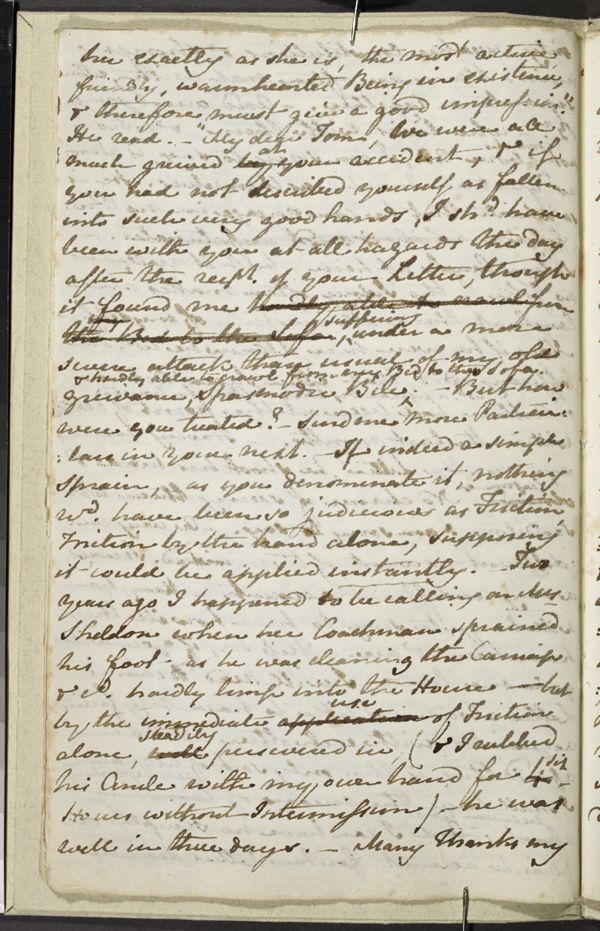 her exactly as she is, the most active,
friendly, warmhearted Being in existence,
& therefore must give a good impression."
He read. – "My dear Tom, We were all
much grieved by at your accident, & if
you had not described yourself as fallen
into such very good hands, I shd. have
been with you at all hazards the day
after the recpt. of your Letter, though
it found me hardly able to crawl from
the Bed to the Sofa, suffering under a more
severe attack than usual of my old
& hardly able to crawl from my Bed to the Sofa.
grievance, Spasmodic Bile, – But how
were you treated? – Send me more Particu:
:lars in your next. – If indeed a simple
Sprain, as you denominate it, nothing
wd. have been so judicious as Friction,
Friction by the hand alone, supposing
it could be applied instantly. – Two
years ago I happened to be calling on Mrs.
Sheldon when her Coachman sprained
his foot as he was cleaning the Carriage
& cd. hardly limp into the House – but
by the immediate application use of Friction
alone, well steadily persevered in (& I rubbed
his Ancle with my own hand for 4 six
Hours without Intermission) – he was
well in three days. – Many Thanks my